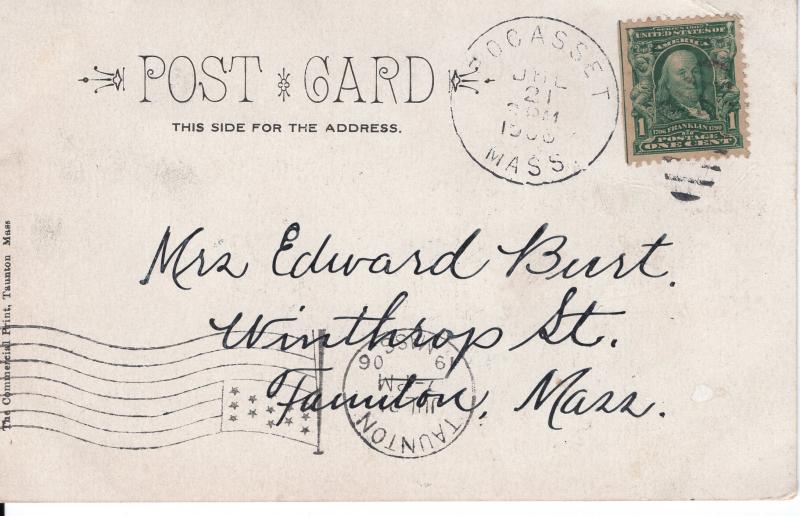 POST CARD
THIS SIDE FOR THE ADDRESS.
POCASSET
JUL
21
1906
MASS.
SERIES 1902
UNITED STATES OF
AMERICA
1 1
1706 FRANKLIN 1790
POSTAGE
ONE CENT
Mrs Edward Burt.
Winthrop St.
Taunton, Mass.
TAUNTON
MASS.
19 06
The Commercial Print, Taunton Mass